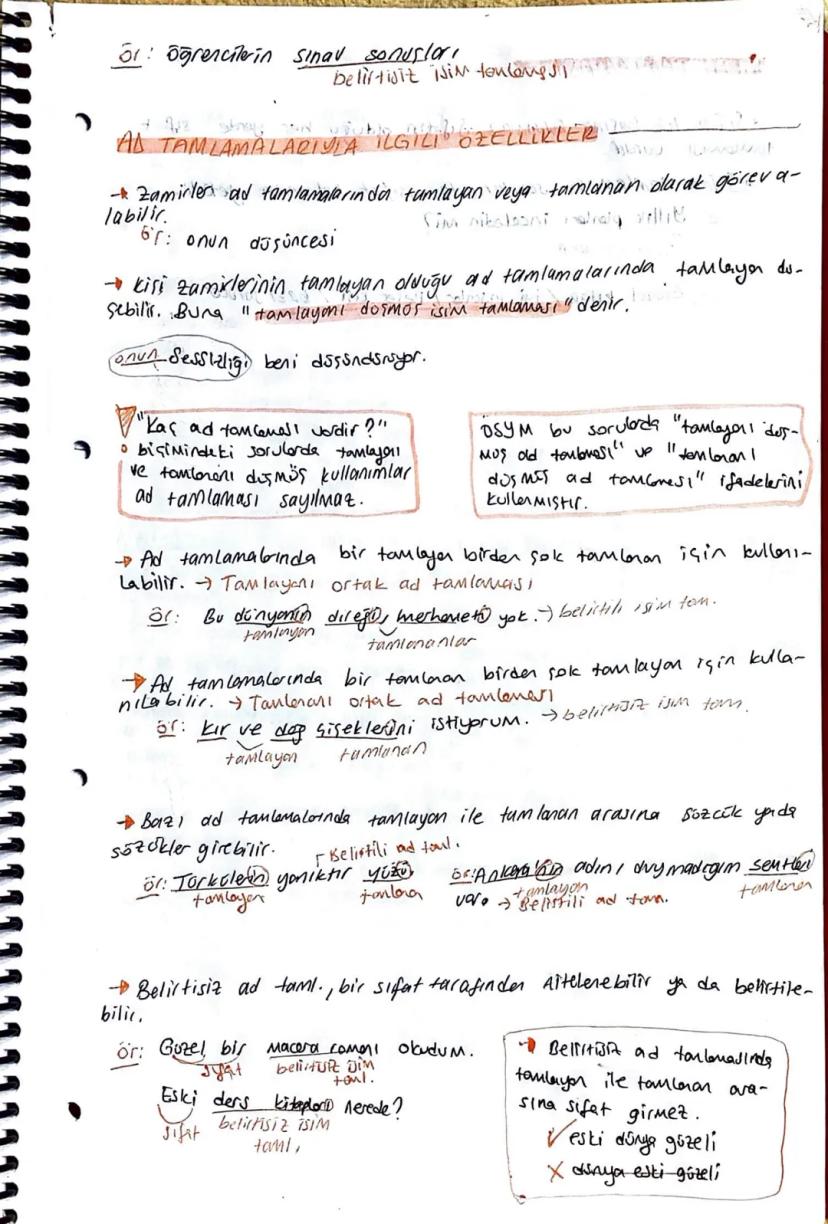 ör: öğrencilerin sınav sonuçları
belirtisiz isim tamlaması
AD TAMLAMALARIYLA İLGİLİ ÖZELLİKLER
→ Zamirler ad tamlamalarında tamlayan veya tamlanan olarak görev a-
labilir.
ör: onun düşüncesi
→ Kişi zamirlerinin tamlayan olduğu ad tamlamalarında tamlayan dü-
şebilir. Buna "tamlayanı düşmüş isim tamlaması" denir.
onun sessizliği beni düşündürüyor.
"Kaç ad tamlaması vardır?"
biçimindeki sorularda tamlayanı
ve tamlananı düşmüş kullanımlar
ad tamlaması sayılmaz.
ÖSYM bu sorularda "tamlayanı düş-
müş ad tamlaması" ve "tamlananı
düşmüş ad tamlaması" ifadelerini
kullanmıştır.
→ Ad tamlamalarında bir tamlayan birden çok tamlanan için kullanı-
labilir. → Tamlayanı ortak ad tamlaması
ör: Bu dünyanın direği, merhameti yok. → belirtili isim tam.
tamlayan tamlananlar
→ Ad tamlamalarında bir tamlanan birden çok tamlayan için kulla-
nılabilir. → Tamlananı ortak ad tamlaması
ör: kır ve dağ çiçeklerini istiyorum. → belirtisiz isim tam.
tamlayan tamlanan
→ Bazı ad tamlamalarında tamlayan ile tamlanan arasına sözcük yada
sözcükler girebilir.
Belirtili ad taml.
ör: Türkülerin yanıktır yüzü ör: Ankara'nın adını duymadığım semtleri
tamlayan tamlanan tamlayan tamlanan
var. → Belirtili ad tam.
→ Belirtisiz ad taml., bir sıfat tarafından nitelenebilir ya da belirtile-
bilir.
ör: Güzel bir macera romanı okudum.
sıfat belirtisiz isim
taml.
Eski ders kitapları nerede?
sıfat belirtisiz isim
taml.
→ Belirtisiz ad tamlamasında
tamlayan ile tamlanan ara-
sına sıfat girmez.
✓ eski dünya güzeli
X dünya eski güzeli